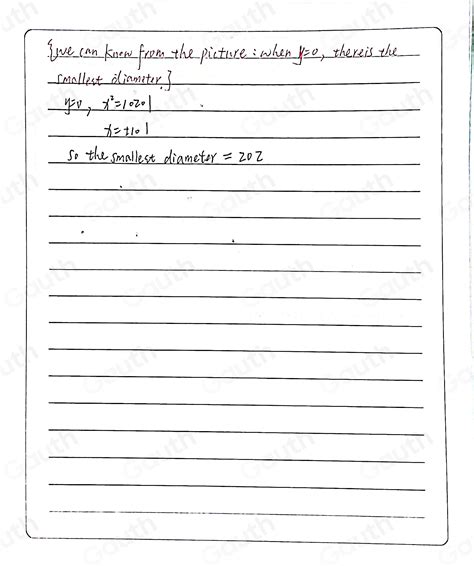 {we can know from the picture : when y=0, thereis the
smallest diameter.}
y=0, x²=10201
x=±101
so the smallest diameter = 202